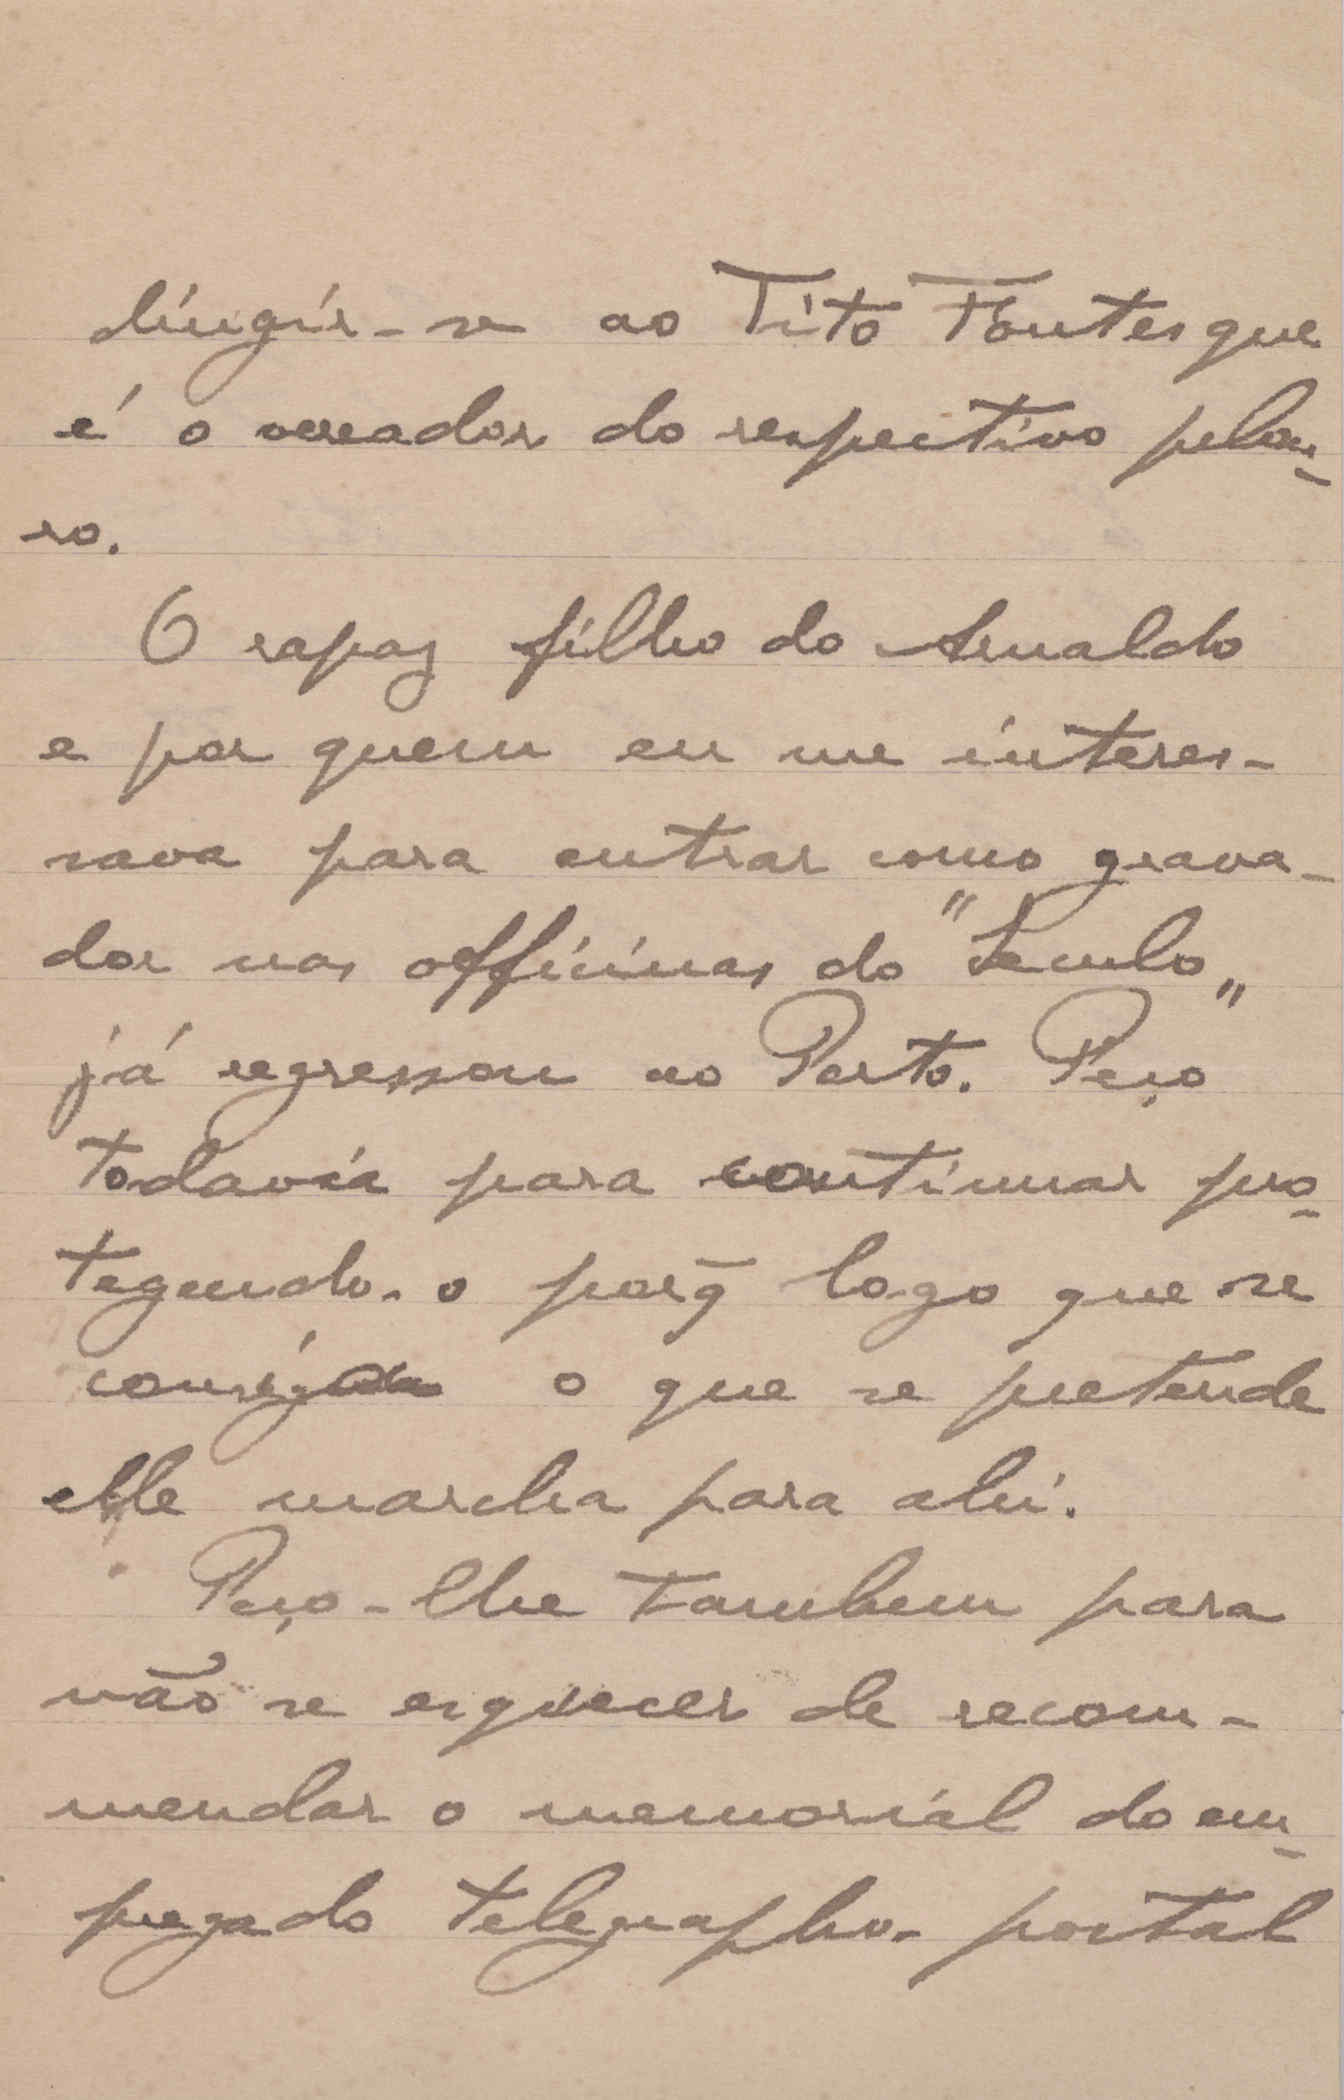 dirigir-se ao Tito Fontes que
é o vereador do respectivo pelou-
ro.
O rapaz filho do Arnaldo
e por quem eu me interes-
sava para entrar como grava-
dor nas officinas do "Seculo"
já regressou ao Porto. Peço
todavia para continuar pro-
tegendo-o porq̃ logo que se
consiga o que se pretende
elle marcha para ahi.
Peço-lhe tambem para
não se esquecer de recom-
mendar o memorial do em-
pregado telegrapho-postal